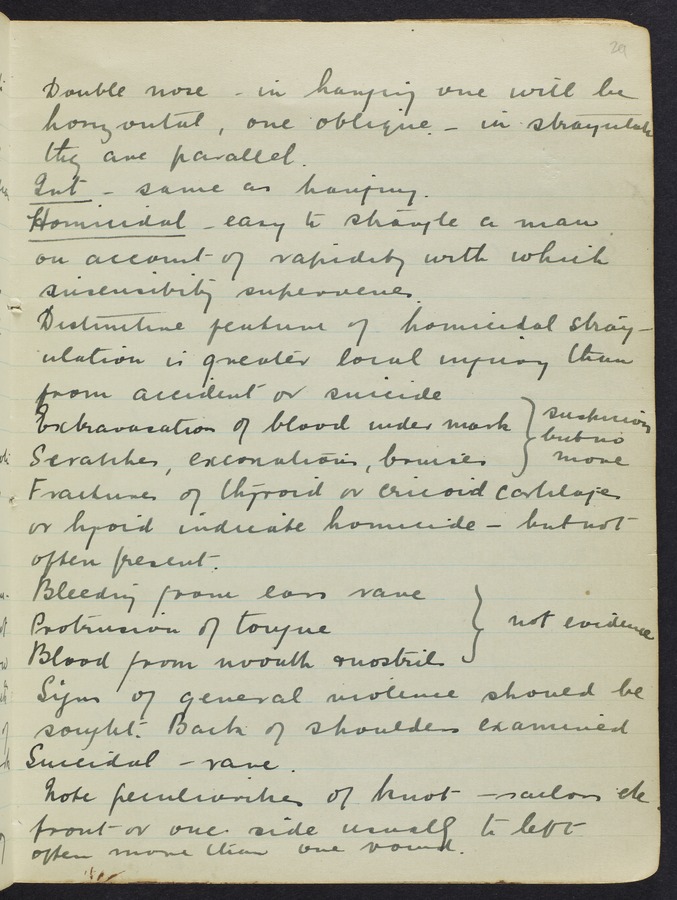 29
Double nose - in hanging one will be
horizontal, one oblique - in strangulat
they are parallel.
Int - same as hanging.
Homicidal - easy to strangle a man
on account of rapidity with which
insensibility supervenes.
Distinctive feature of homicidal strang-
ulation is greater local injury than
from accident or suicide
Extravasation of blood under mark } suspicious
Scratches, excoriations, bruises } but no more
Fractures of thyroid or cricoid cartilages
or hyoid indicate homicide - but not
often present.
Bleeding from ears rare
Protrusion of tongue } not evidence
Blood from mouth & nostril
Signs of general violence should be
sought. Back of shoulders examined
Suicidal - rare.
Note peculiarities of knot - sailors etc
front or one side usually to left
often more than one round.